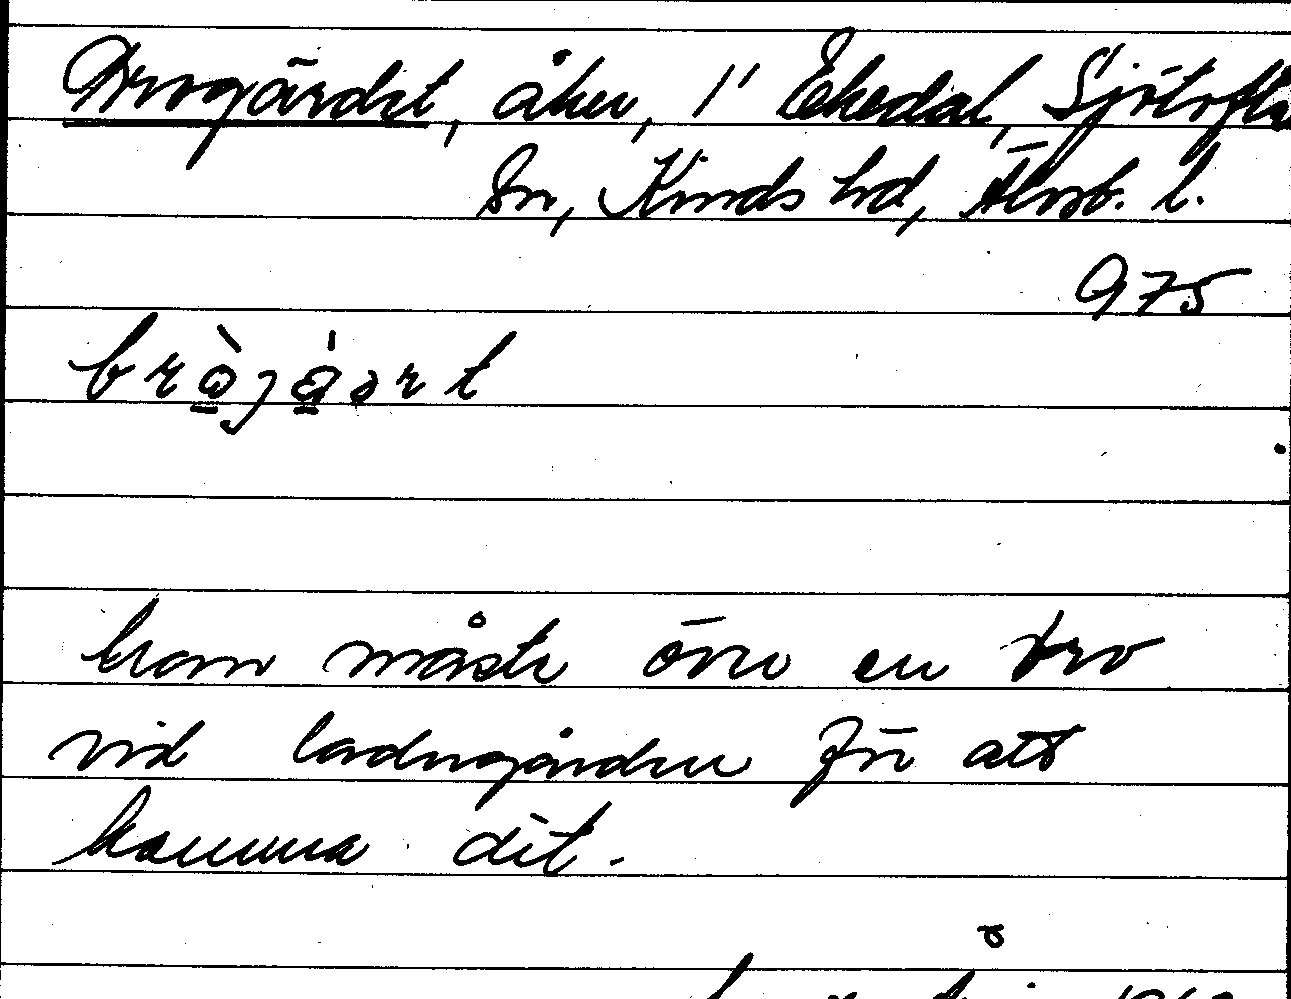 Brogärdet, åker, 1' Ekedal, Sjötofta
Sn, Kinds hd, Älvsb. l.
975
bròjäərt
kom måste över en bro
vid ladugården för att
komma dit.